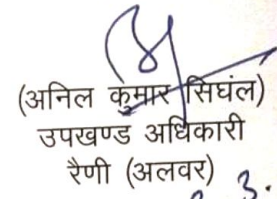 (अनिल कुमार सिघंल)
उपखण्ड अधिकारी
रैणी (अलवर)